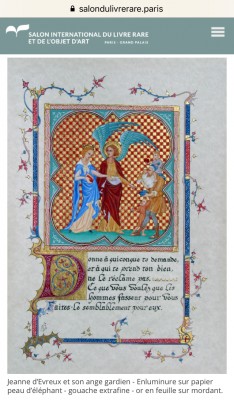 salondulivrerare.paris
SALON INTERNATIONAL DU LIVRE RARE
ET DE L'OBJET D'ART
PARIS GRAND PALAIS
Donne à quiconque te demande,
et à qui te prend ton bien,
ne le réclame pas.
Ce que vous voulez que les
hommes fassent pour vous
Faites-le semblablement pour eux.
Jeanne d'Evreux et son ange gardien - Enluminure sur papier
peau d'éléphant - gouache extrafine - or en feuille sur mordant.